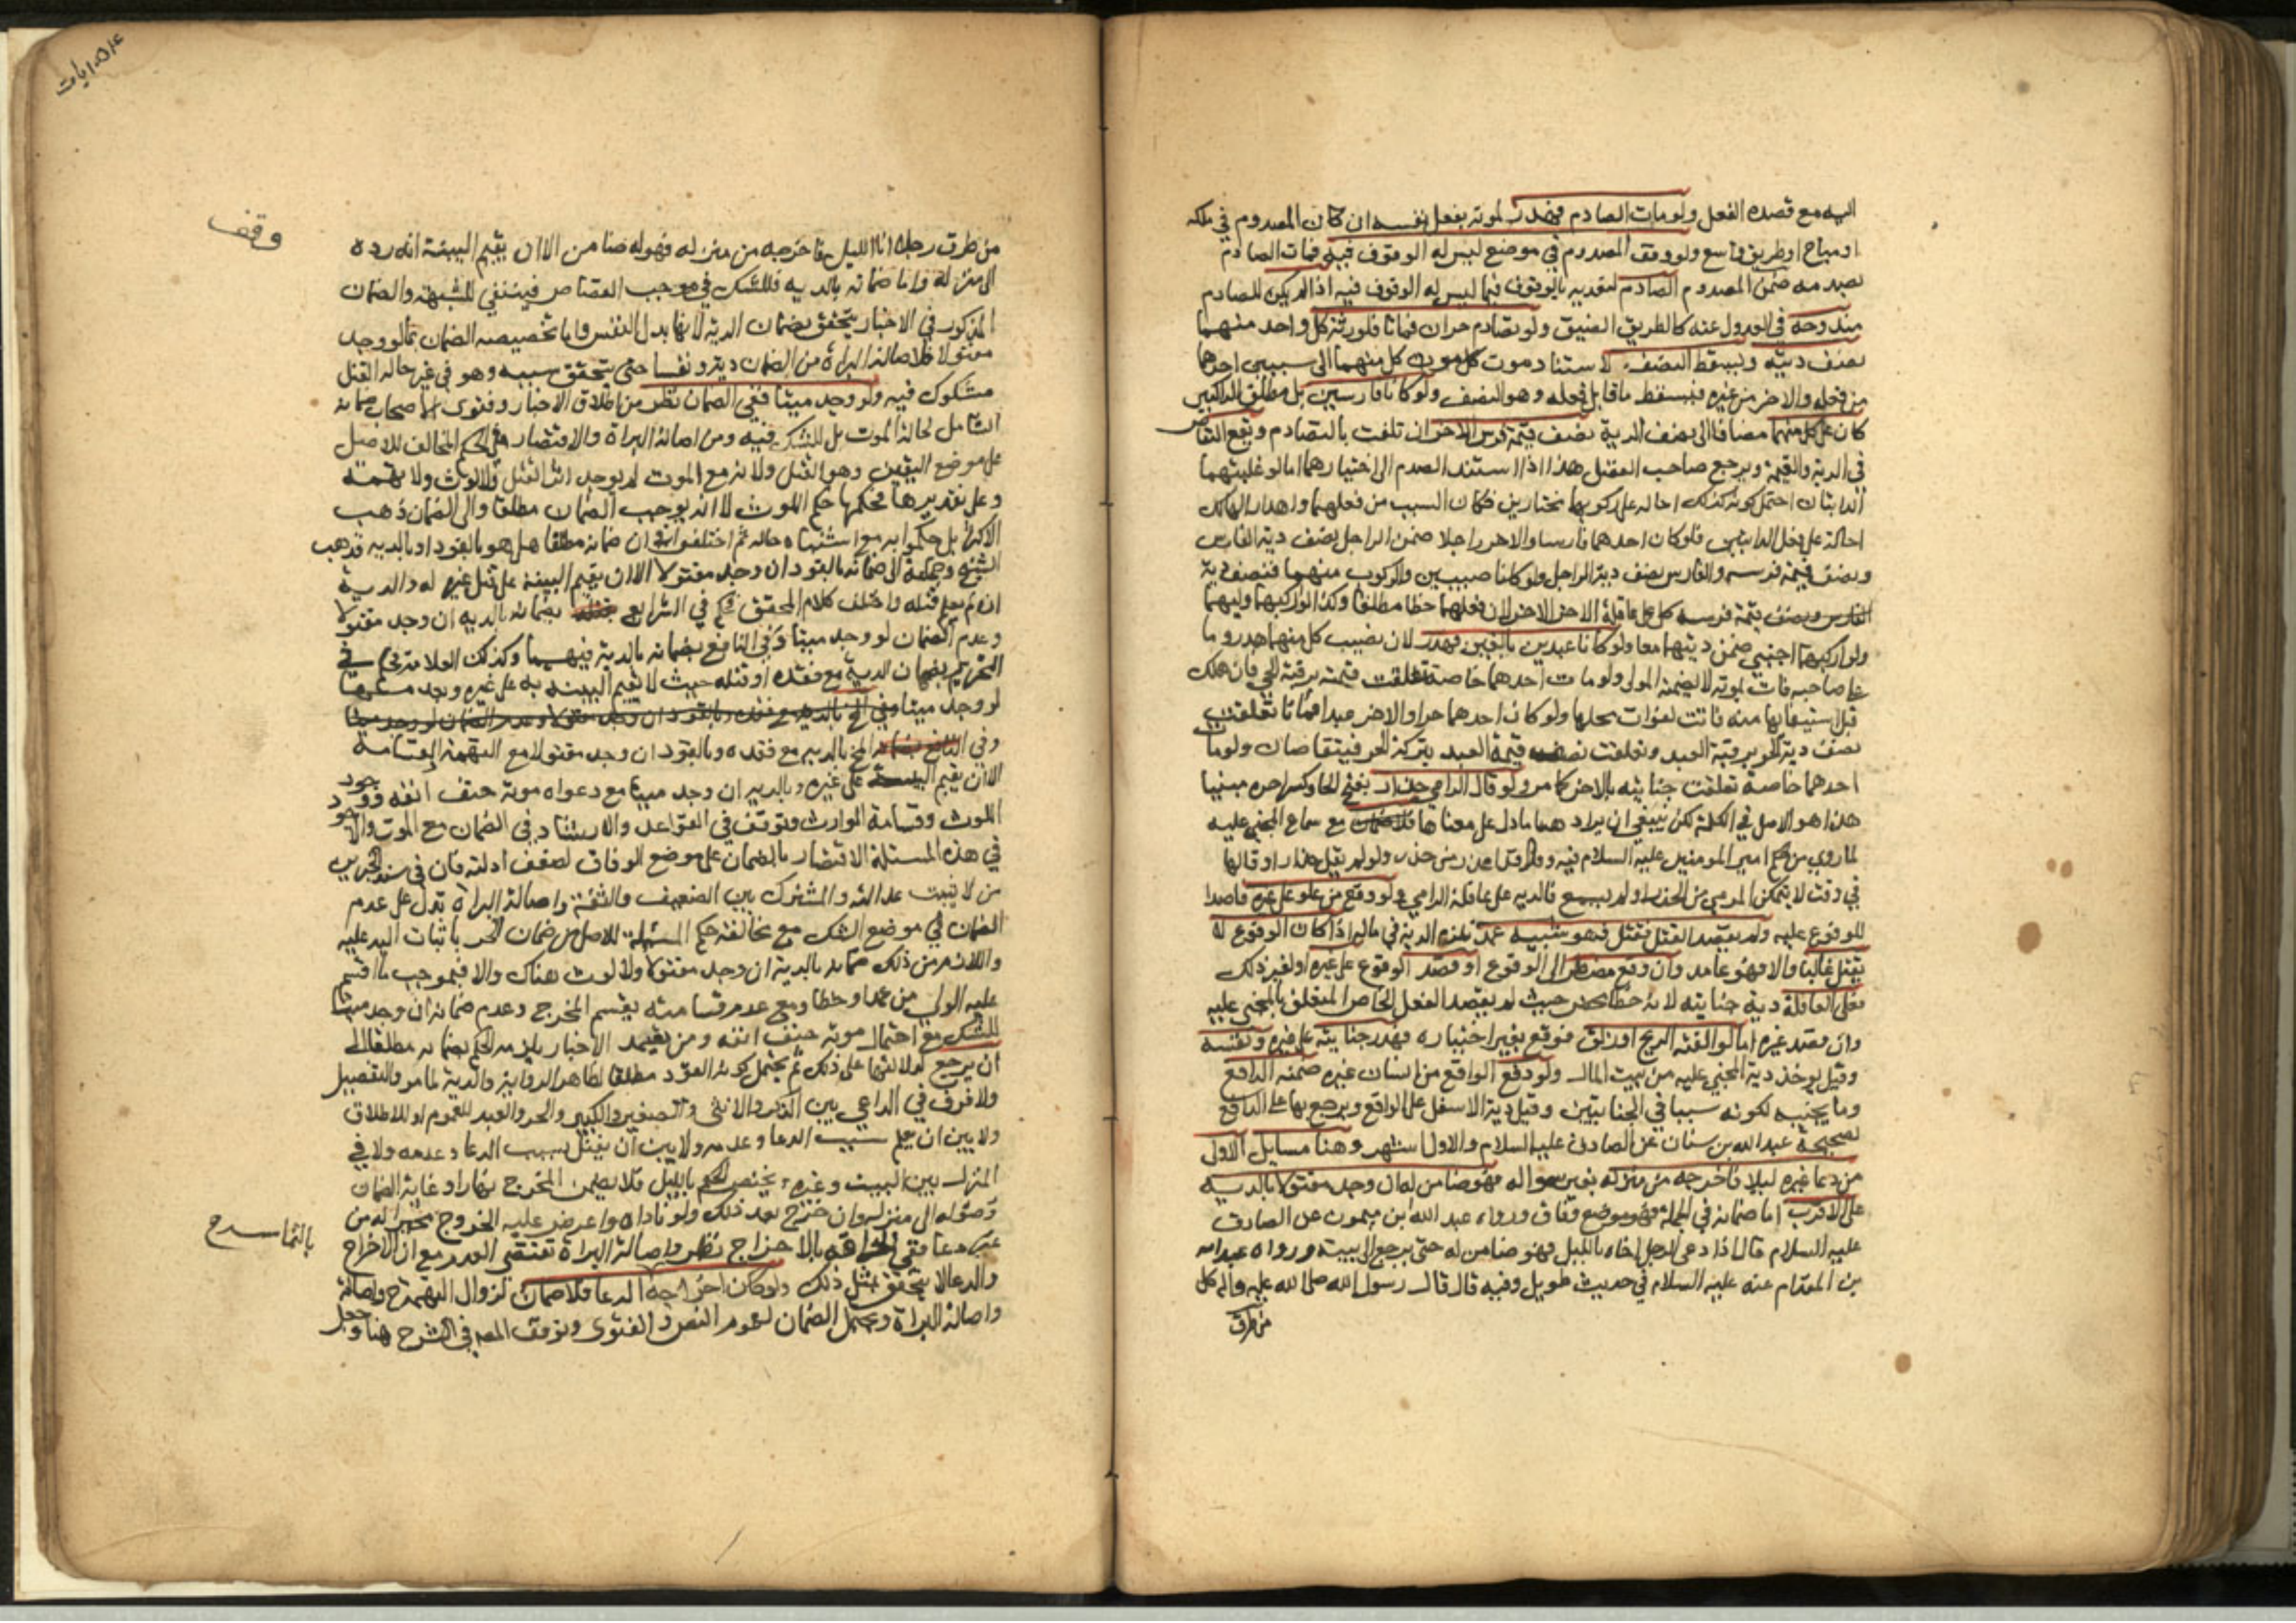 اليه مع قصده الفعل ولو مات الصادم فهدر لموته بفعل نفسه ان كان المصدوم في ملكه
او مباح او طريق واسع ولو وقف المصدوم في موضع ليس له الوقوف فيه فمات الصادم
بصدمه ضمن المصدوم الصادم لتعديه بالوقوف فيما ليس له الوقوف فيه اذا لم يكن للصادم
مندوحة في العدول عنه كالطريق الضيق ولو تصادم حران فماتا فلورثة كل واحد منهما
نصف ديته ويسقط النصف لاستناد موت كل منهما الى سببين احدهما
من فعله والاخر من غيره فيسقط ما قابل فعله وهو النصف ولو كانا فارسين بل مطلق الراكبين
كان على كل منهما مضافا الى نصف الدية نصف قيمة فرس الاخر ان تلفت بالتصادم ويقع التقاص
في الدية والقيمة ويرجع صاحب الفضل هذا اذا استند الصدم الى اختيارهما اما لو غلبتهما
الدابتان احتمل كونه كذلك احاله على ركوبهما مختارين فكان السبب من فعلهما واهدار الهالك
احالة على فعل الدابتين فلو كان احدهما فارسا والاخر راجلا ضمن الراجل نصف دية الفارس
ونصف قيمة فرسه والفارس نصف دية الراجل ولو كانا صبيين والركوب منهما فنصف دية
كل على عاقلة الاخر لان فعلهما خطا مطلقا وكذا لو اركبهما وليهما
ولو اركبهما اجنبي ضمن ديتهما معا ولو كانا عبدين بالغين فهدر لان نصيب كل منهما هدر وما
على صاحبه فات بموته لا يضمنه المولى ولو مات احدهما خاصة تعلقت قيمته برقبة الحي فان هلك
قبل استيفائها منه فاتت لفوات محلها ولو كان احدهما حرا والاخر عبدا فماتا تعلقت
نصف دية الحر برقبة العبد وتعلقت نصف قيمة العبد بتركة الحر فيتقاصان ولو مات
احدهما خاصة تعلقت جنايته بالاخر كما مر ولو قال الرامي حذار بفتح الحا وكسر اخره مبنيا
هذا هو الاصل في الكلمة لكن ينبغي ان يراد هنا ما دل على معناها فلا ضمان مع سماع المجني عليه
لما روي من حكم امير المومنين عليه السلام فيه وقال قد اعذر من حذر ولو لم يقل حذار او قالها
في وقت لا يتمكن المرمي من الحذر او لم يسمع فالدية على عاقلة الرامي ولو وقع من علو على غيره قاصدا
للوقوع عليه ولم يقصد القتل فقتل فهو شبيه عمد يلزمه الدية في ماله اذا كان الوقوع لا
يقتل غالبا والا فهو عامد وان وقع مضطرا الى الوقوع او قصد الوقوع على غيره او لغير ذلك
فعلى العاقلة دية جنايته لانه خطا محض حيث لم يقصد الفعل الخاص المتعلق بالمجني عليه
وان قصد غيره اما لو القته الريح او زلق فوقع بغير اختياره فهدر جنايته على غيره ونفسه
وقيل يوخذ دية المجني عليه من بيت المال ولو دفع الواقع من انسان غيره ضمنه الدافع
وما يجنيه لكونه سببا في الجنايتين وقيل دية الاسفل على الواقع ويرجع بها على الدافع
لصحيحة عبد الله بن سنان عن الصادق عليه السلام والاول اشهر وهنا مسايل الاولى
من دعا غيره ليلا فاخرجه من منزله بغير سواله فهو ضامن له ان وجد مقتولا بالدية
على الاقرب اما ضمانه في الجملة فهو موضع وفاق ورواه عبد الله بن ميمون عن الصادق
عليه السلام قال اذا دعى الرجل اخاه بالليل فهو ضامن له حتى يرجع الى بيته ورواه عبد الله
بن المقدام عنه عليه السلام في حديث طويل وفيه قال قال رسول الله صلى الله عليه واله كل
من طرق
١٠٥٤ يات
وقف
من طرق رجلا بالليل فاخرجه من منزله فهو له ضامن الا ان يقيم البينة انه رده
الى منزله واما ضمانه بالدية فللشك في موجب القصاص فينتفي للشبهة والضمان
المذكور في الاخبار يتحقق بضمان الدية لانها بدل النفس واما تخصيصه الضمان بما لو وجد
مقتولا فلاصالة البراءة من الضمان دية ونفسا حتى يتحقق سببه وهو في غير حالة القتل
مشكوك فيه ولو وجد ميتا ففي الضمان نظر من اطلاق الاخبار وفتوى الاصحاب ضمانه
الشامل لحالة الموت بل للشك فيه ومن اصالة البراة والاقتصار في الحكم المخالف للاصل
على موضع اليقين وهو القتل ولانه مع الموت لم يوجد اثر القتل ولا لوث ولا تهمة
وعلى تقديرها فحكمها حكم اللوث لا انه يوجب الضمان مطلقا والى الضمان ذهب
الاكثر بل حكموا به مع اشتباه حاله ثم اختلفوا في ان ضمانه مطلقا هل هو بالقود او بالدية فذهب
الشيخ وجماعة الى ضمانه بالقود ان وجد مقتولا الا ان يقيم البينة على قتل غيره له والدية
ان لم يعلم قتله واختلف كلام المحقق فحكم في الشرايع بضمانه بالدية ان وجد مقتولا
وعدم الضمان لو وجد ميتا وفي النافع بضمانه بالدية فيهما وكذلك العلامة فحكم في
التحرير بضمان الدية مع فقده او قتله حيث لا يقيم البينة به على غيره وبعدمها
لو وجد ميتا وفي
وفي بالدية مع فقده وبالقود ان وجد مقتولا مع التهمة والقسامة
الا ان يقيم البينة على غيره وبالدية ان وجد ميتا مع دعواه موته حتف انفه ووجود
اللوث وقسامة الوارث وتوقف في القواعد والارشاد في الضمان مع الموت والاجود
في هذه المسئلة الاقتصار بالضمان على موضع الوفاق لضعف ادلته فان في سند الخبرين
من لا يثبت عدالته والمشترك بين الضعيف والثقة واصالة البراة تدل على عدم
الضمان في موضع الشك مع مخالفة حكم المسئلة للاصل من ضمان الحر باثبات اليد عليه
واللازم من ذلك ضمانه بالدية ان وجد مقتولا ولا لوث هناك والا فبموجب ما اقسم
عليه الولي من عمد او خطا ومع عدم قسامته يقسم المخرج وعدم ضمانه ان وجد ميتا
للشك مع احتمال موته حتف انفه ومن يعتمد الاخبار يلزمه الحكم بضمانه مطلقا الى
ان يرجع لدلالتها على ذلك ثم يحتمل كونه القود مطلقا لظاهر الرواية والدية لما مر والتفصيل
ولا فرق في الداعي بين الذكر والانثى والصغير والكبير والحر والعبد للعموم او للاطلاق
ولا بين ان يعلم سبب الدعا وعدمه ولا بين ان يقتل بسبب الدعا وعدمه ولا في
المنزل بين البيت وغيره ويختص الحكم بالليل فلا يضمن المخرج نهارا وغاية الضمان
وصوله الى منزله وان خرج بعد ذلك ولو ناداه واعرض عليه الخروج مخيرا له من
غير دعا ففي الحاقه بالاخراج نظر واصالة البراة تقتضي العدم مع ان الاخراج
والدعا لا يتحقق بمثل ذلك ولو كان اخراجه بالتماسه ح الدعا فلا ضمان لزوال التهمة ح واصالة
واصالة البراة ويحتمل الضمان لعموم النص والفتوى وتوقف المص في الشرح هنا وجعل